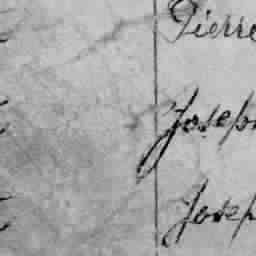 Pierre
Joseph
Josep